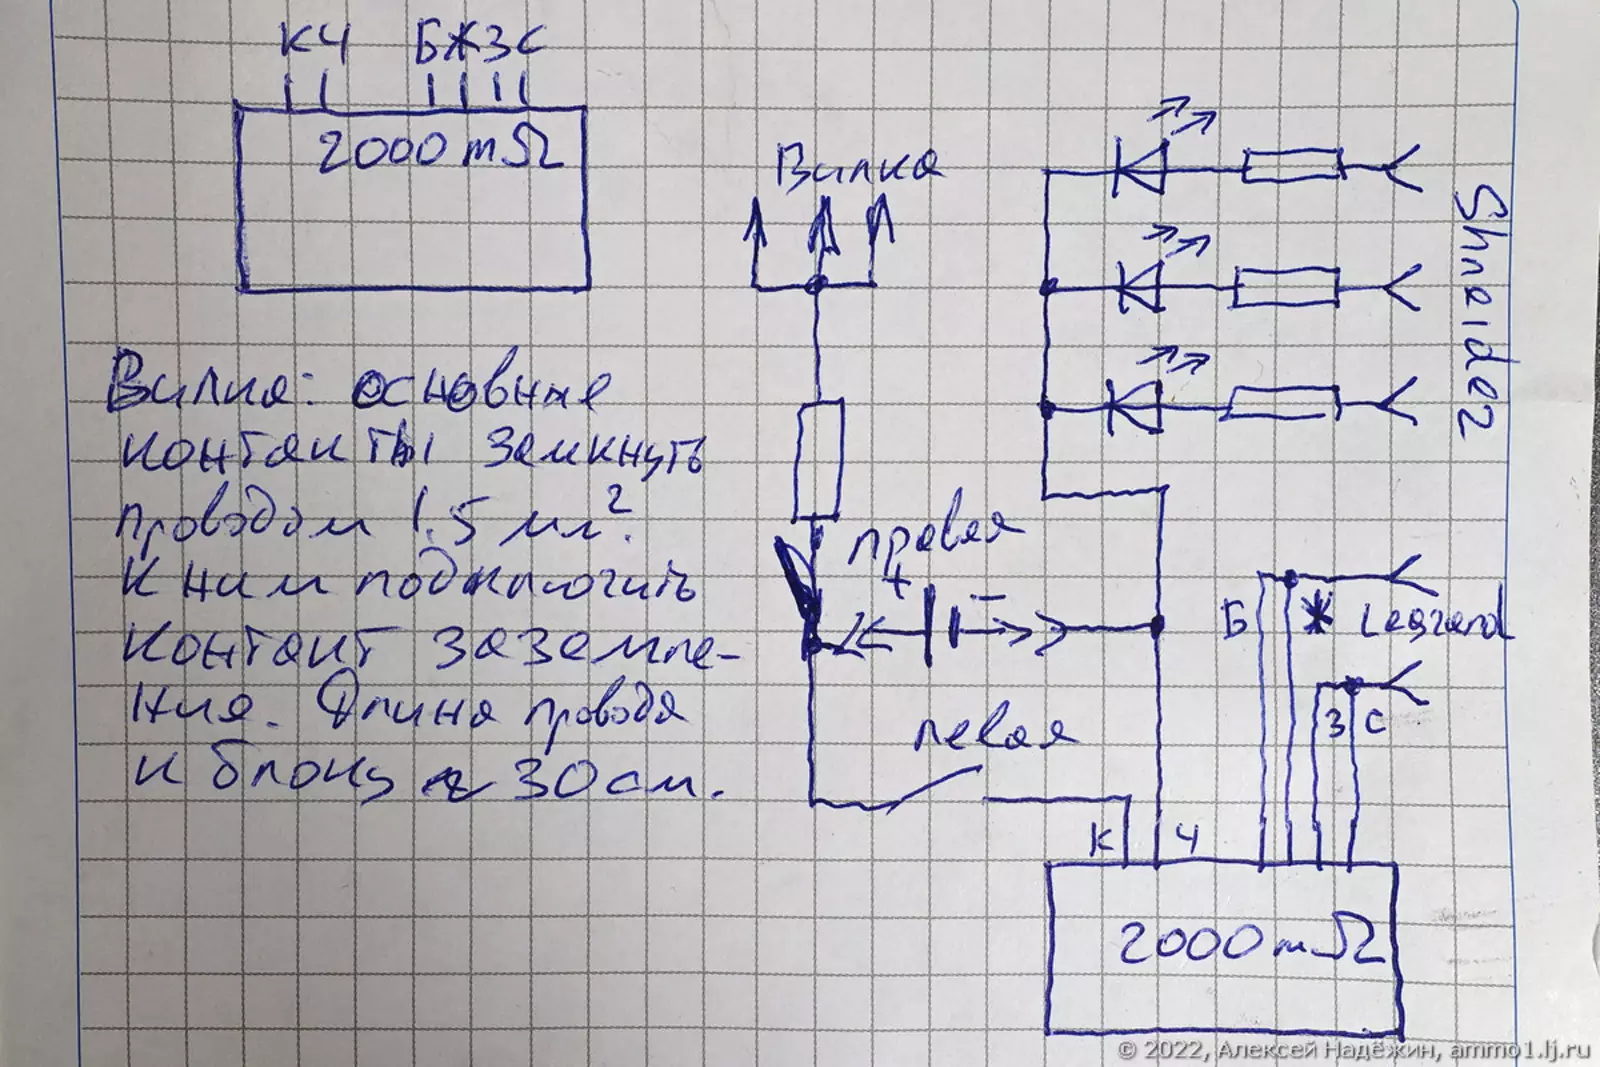 КЧ БЖЗС
2000 mΩ
Вилка
Shneider
Вилка: основные
контакты замкнуть
проводом 1.5 мм².
К ним подключить
контакт заземле-
ния. Длина провода
к блоку ≈ 30 см.
правая
+ −
левая
Б Ж Legrand
З С
К Ч
2000 mΩ
© 2022, Алексей Надёжин, ammo1.lj.ru